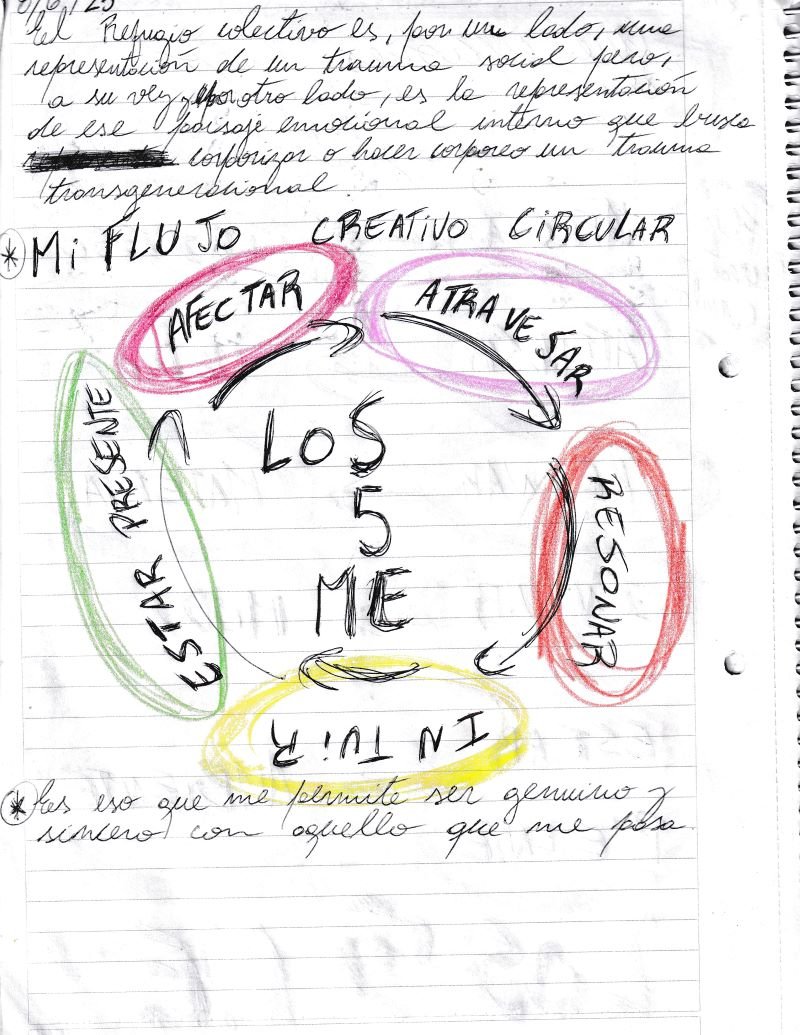 /6/25
El Refugio colectivo es, por un lado, una
representación de un trauma social pero,
a su vez, y por otro lado, es la representación
de ese paisaje emocional interno que busca
corporizar o hacer corporeo un trauma
transgeneracional.
* Mi FLUJO CREATIVO CiRCULAR
AFECTAR
ATRAVESAR
RESONAR
INTUiR
ESTAR PRESENTE
LOS
5
ME
* Es eso que me permite ser genuino y
sincero con aquello que me pasa